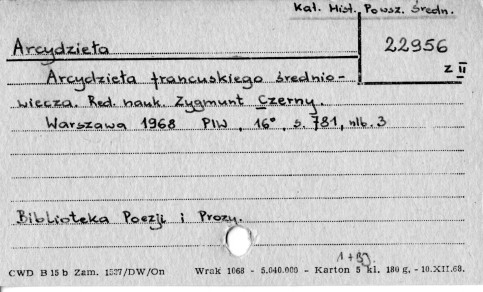 Kat. Hist. Powsz. Średn.
Arcydzieła
22956
z II
Arcydzieła francuskiego średnio-
wiecza. Red. nauk. Zygmunt Czerny.
Warszawa 1968 PIW, 16°, s. 781, nlb. 3
Biblioteka Poezji i Prozy.
CWD B 15 b Zam. 1337/DW/On Wrak 1068 - 5.040.000 - Karton 5 kl. 180 g. - 10.XII.68.